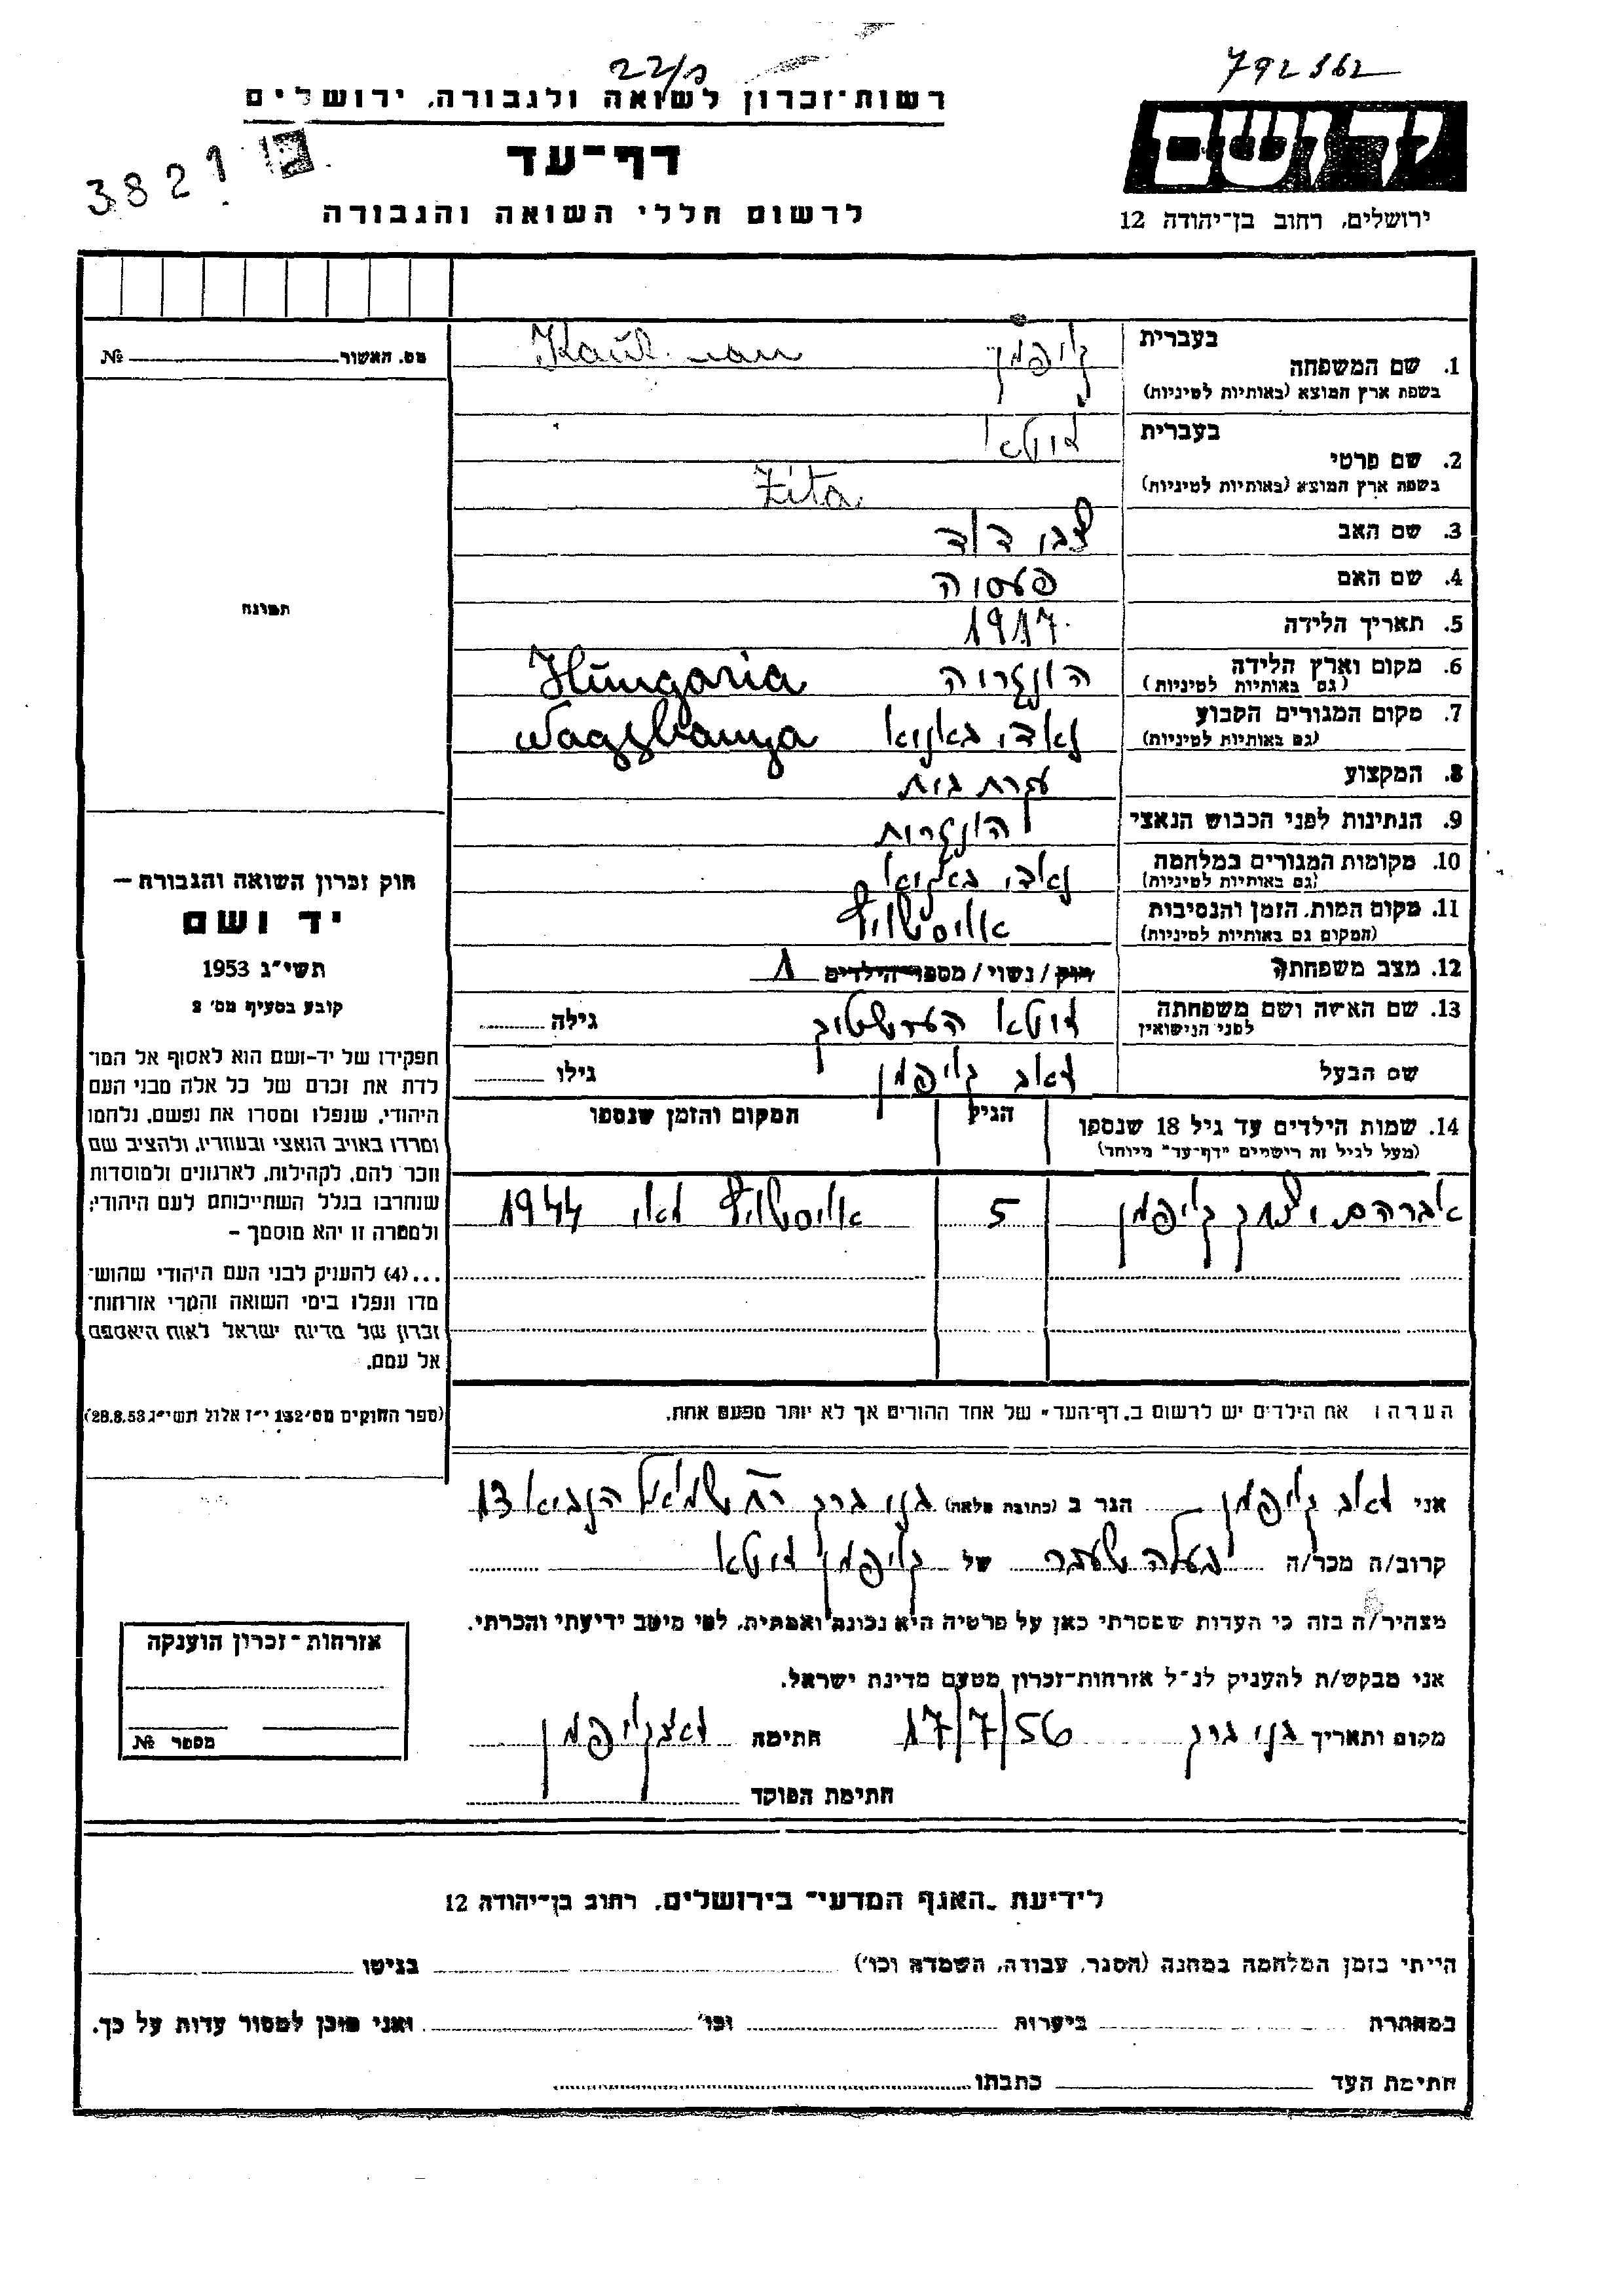 22/9
792362
רשות-זכרון לשואה ולגבורה, ירושלים
3821
דף-עד
לרשום חללי השואה והגבורה
יד ושם
ירושלים, רחוב בן-יהודה 12
מס. האשור № 
בעברית
1. שם המשפחה
בשפת ארץ המוצא (באותיות לטיניות)
קויפמן
בעברית
2. שם פרטי
בשפת ארץ המוצא (באותיות לטיניות)
זיטא
Zita
3. שם האב
צבי דוד
4. שם האם
5. תאריך הלידה
1917
6. מקום וארץ הלידה
(גם באותיות לטיניות)
הונגריה Hungaria
7. מקום המגורים הקבוע
(גם באותיות לטיניות)
נאדי באניא
8. המקצוע
עקרת בית
9. הנתינות לפני הכבוש הנאצי
הונגרית
10. מקומות המגורים במלחמה
(גם באותיות לטיניות)
נאדי באניא
11. מקום המות, הזמן והנסיבות
(המקום גם באותיות לטיניות)
אויסשוויץ
12. מצב משפחתה
רווק / נשוי / מספר הילדים 1
13. שם האישה ושם משפחתה
לפני הנישואין
זיטא
גילה
שם הבעל
זאב קויפמן
גילו
14. שמות הילדים עד גיל 18 שנספו
(מעל לגיל זה רישמים "דף-עד" מיוחד)
הגיל
המקום והזמן שנספו
אברהם יצחק קויפמן 5 אויסשוויץ מאי 1944
הערה: את הילדים יש לרשום ב"דף-העד" של אחד ההורים אך לא יותר מפעם אחת.
תמונה
חוק זכרון השואה והגבורה –
יד ושם
תשי"ג 1953
קובע בסעיף מס' 2
תפקידו של יד-ושם הוא לאסוף אל המו־
לדת את זכרם של כל אלה מבני העם
היהודי, שנפלו ומסרו את נפשם, נלחמו
ומרדו באויב הנאצי ובעוזריו, ולהציב שם
וזכר להם, לקהילות, לארגונים ולמוסדות
שנחרבו בגלל השתייכותם לעם היהודי;
ולמטרה זו יהא מוסמך –
...(4) להעניק לבני העם היהודי שהוש־
מדו ונפלו בימי השואה והמרי אזרחות־
זכרון של מדינת ישראל לאות היאספם
אל עמם.
(ספר החוקים מס' 132 י"ז אלול תשי"ג 28.8.53)
אני זאב קויפמן הגר ב (כתובת מלאה) בני ברק רח' שמואל הנביא 13
קרוב/ה מכר/ה בעלה של קויפמן זיטא
מצהיר/ה בזה כי העדות שמסרתי כאן על פרטיה היא נכונה ואמתית, לפי מיטב ידיעתי והכרתי.
אני מבקש/ת להעניק לנ"ל אזרחות-זכרון מטעם מדינת ישראל.
מקום ותאריך בני ברק 17/7/56 חתימה זאב קויפמן
חתימת הפוקד
אזרחות-זכרון הוענקה
מספר №
לידיעת "האגף המדעי" בירושלים, רחוב בן-יהודה 12
הייתי בזמן המלחמה במחנה (הסגר, עבודה, השמדה וכו') בגיטו
במחתרת ביערות וכו' ואני מוכן למסור עדות על כך.
חתימת העד כתבתו